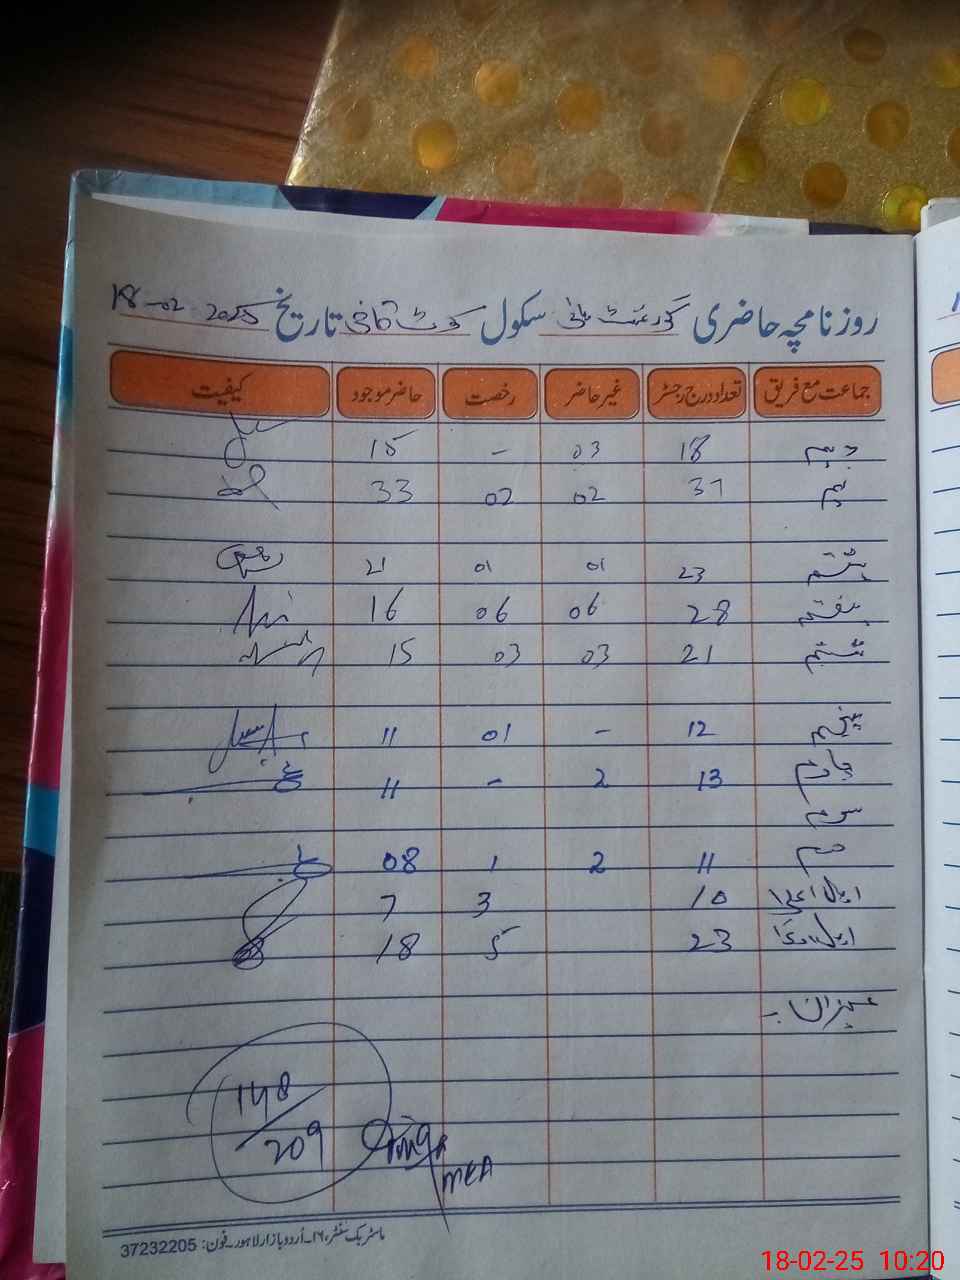 روزنامچہ حاضری گورنمنٹ ہائی سکول کوٹ کافی تاریخ 18-02-2025
جماعت مع فریق تعداد درج رجسٹر غیر حاضر رخصت حاضر موجود کیفیت
دہم 18 03 - 15
نہم 37 02 02 33
ہشتم 23 01 01 21
ہفتم 28 06 06 16
ششم 21 03 03 15
پنجم 12 - 01 11
چہارم 13 2 - 11
سوم
دوم 11 2 1 08
اول اعلیٰ 10 3 7
اول ادنیٰ 23 5 18
میزان :-
148
209
MEA
ماسٹر بک سنٹر، ۱۶۔اُردو بازار لاہور۔ فون: 37232205
18-02-25 10:20